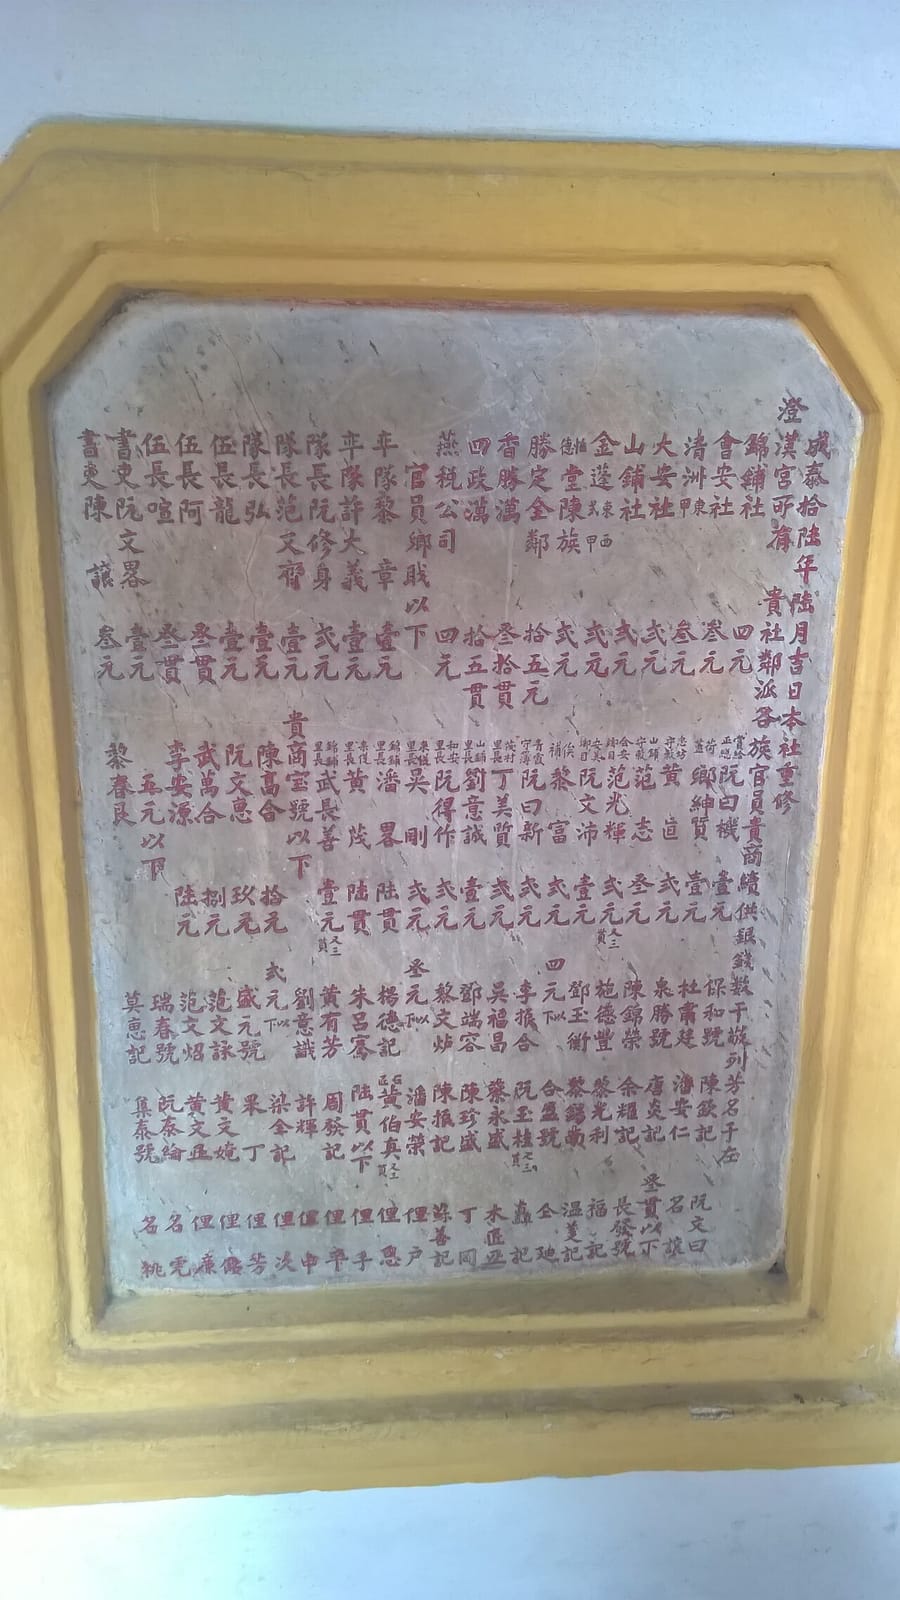 成泰拾陸年陸月吉日本社重修
澄漢宮所有貴社鄰派各族官員貴商續供銀錢數干謹列芳名于左
錦鋪社 四元
會安社 叁元
清洲東甲 叁元
大安社 弍元
山鋪社 弍元
金蓬弍東西甲 弍元
德堂陳族 弍元
勝定全鄰 拾五元
香勝萬 叁拾貫
四政萬 拾五貫
燕税公司 四元
官員鄉戝以下
率隊黎章 壹元
率隊許大義 壹元
隊長阮修身 弍元
隊長范文齊 壹元
隊長弘 壹元
伍長龍 壹元
伍長阿 叁貫
伍長喧 叁貫
書吏阮文畧 壹元
書吏陳議 叁元
阮曰機 壹元
鄉紳質 壹元
守黄直 弍元
山鋪范志 叁元
會安范光輝 弍元
阮文沛 壹元
黎富 弍元
阮曰新 弍元
里長丁美質 弍元
山鋪劉意誠 壹元
和安里長阮得作 弍元
里長吳剛 弍元
錦鋪里長潘畧 陸貫
里長黄茂 陸貫
錦鋪里長武長善 壹元又三貫
貴商宝號以下
陳高合 拾元
阮文惠 玖元
武萬合 捌元
李安源 陸元
五元以下
黎春良
保和號
杜肅廷
泉勝號
陳錦榮
施德豐
鄧玉衡
四元以下
李振合
吳福昌
鄧端容
黎文炉
叁元下以
楊德記
朱呂騫
黄有芳
劉意識
弍元下以
盛元號
范文詠
范文炤
瑞春號
莫惠記
陳欽記
潘安仁
唐炎記
余耀記
黎光利
黎錫南
合盈號
阮玉桂
蔡永盛
陳珍盛
陳振記
潘安榮
黄伯真
陸貫以下
周發記
許輝
梁金記
果丁
黄文婉
黄文
阮泰綸
集泰號
阮文曰
名議
叁貫以下
長發號
福記
温美記
仝廸
記
木匠亞
丁同
蘇善記
俚户
俚恩
俚手
俚平
俚申
俚次
俚芳
俚
俚廉
名完
名桃